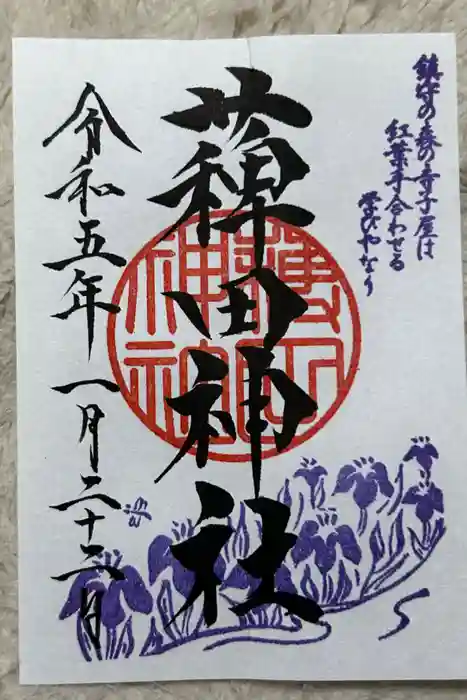 鎮守の森の寺子屋は
紅葉手合わせる
学びやなり
薭田神社
薭田
神社
令和五年一月二十二日